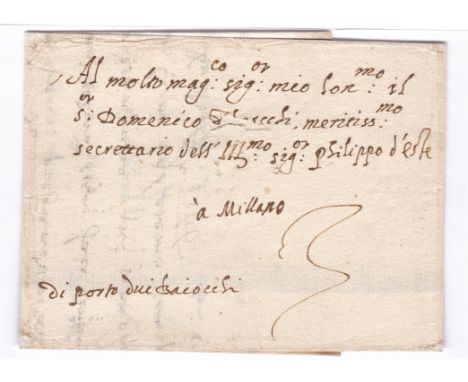 Al molto mag:co sig:or mio hon:mo il
s:or Domenico meritiss:mo
secrettario dell' Ill:mo sig:or philippo d'este
à Millano
3
di porto dui baiocchi